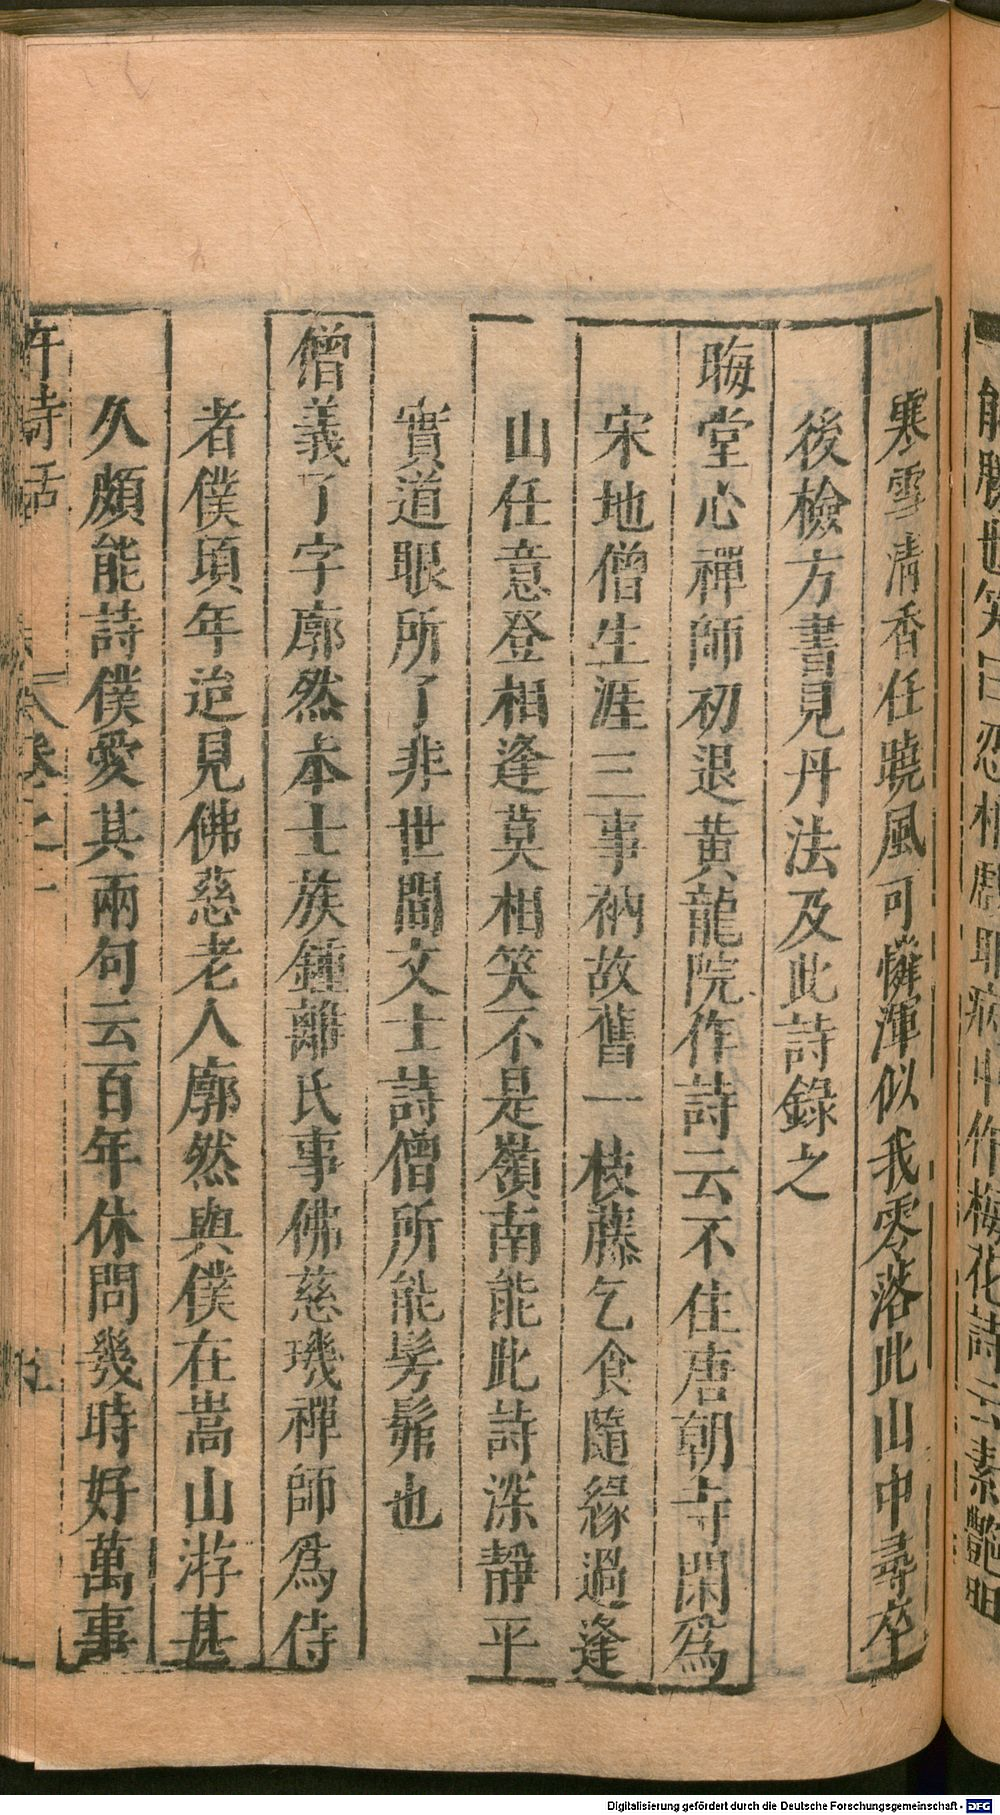 能勝世笑曰忍相劇耶病中作梅花詩云素艷明
寒雪清香任曉風可憐渾似我零落此山中尋卒
後檢方書見丹法及此詩錄之
晦堂心禪師初退黃龍院作詩云不住唐朝寺閑爲
宋地僧生涯三事衲故舊一枝藤乞食隨緣過逢
山任意登相逢莫相笑不是嶺南能此詩深靜平
實道眼所了非世間文士詩僧所能髣髴也
僧義了字廓然本士族鍾離氏事佛慈璣禪師爲侍
者僕頃年迨見佛慈老人廓然與僕在嵩山游甚
久頗能詩僕愛其兩句云百年休問幾時好萬事
許詩話
卷之一
五
Digitalisierung gefördert durch die Deutsche Forschungsgemeinschaft - DFG